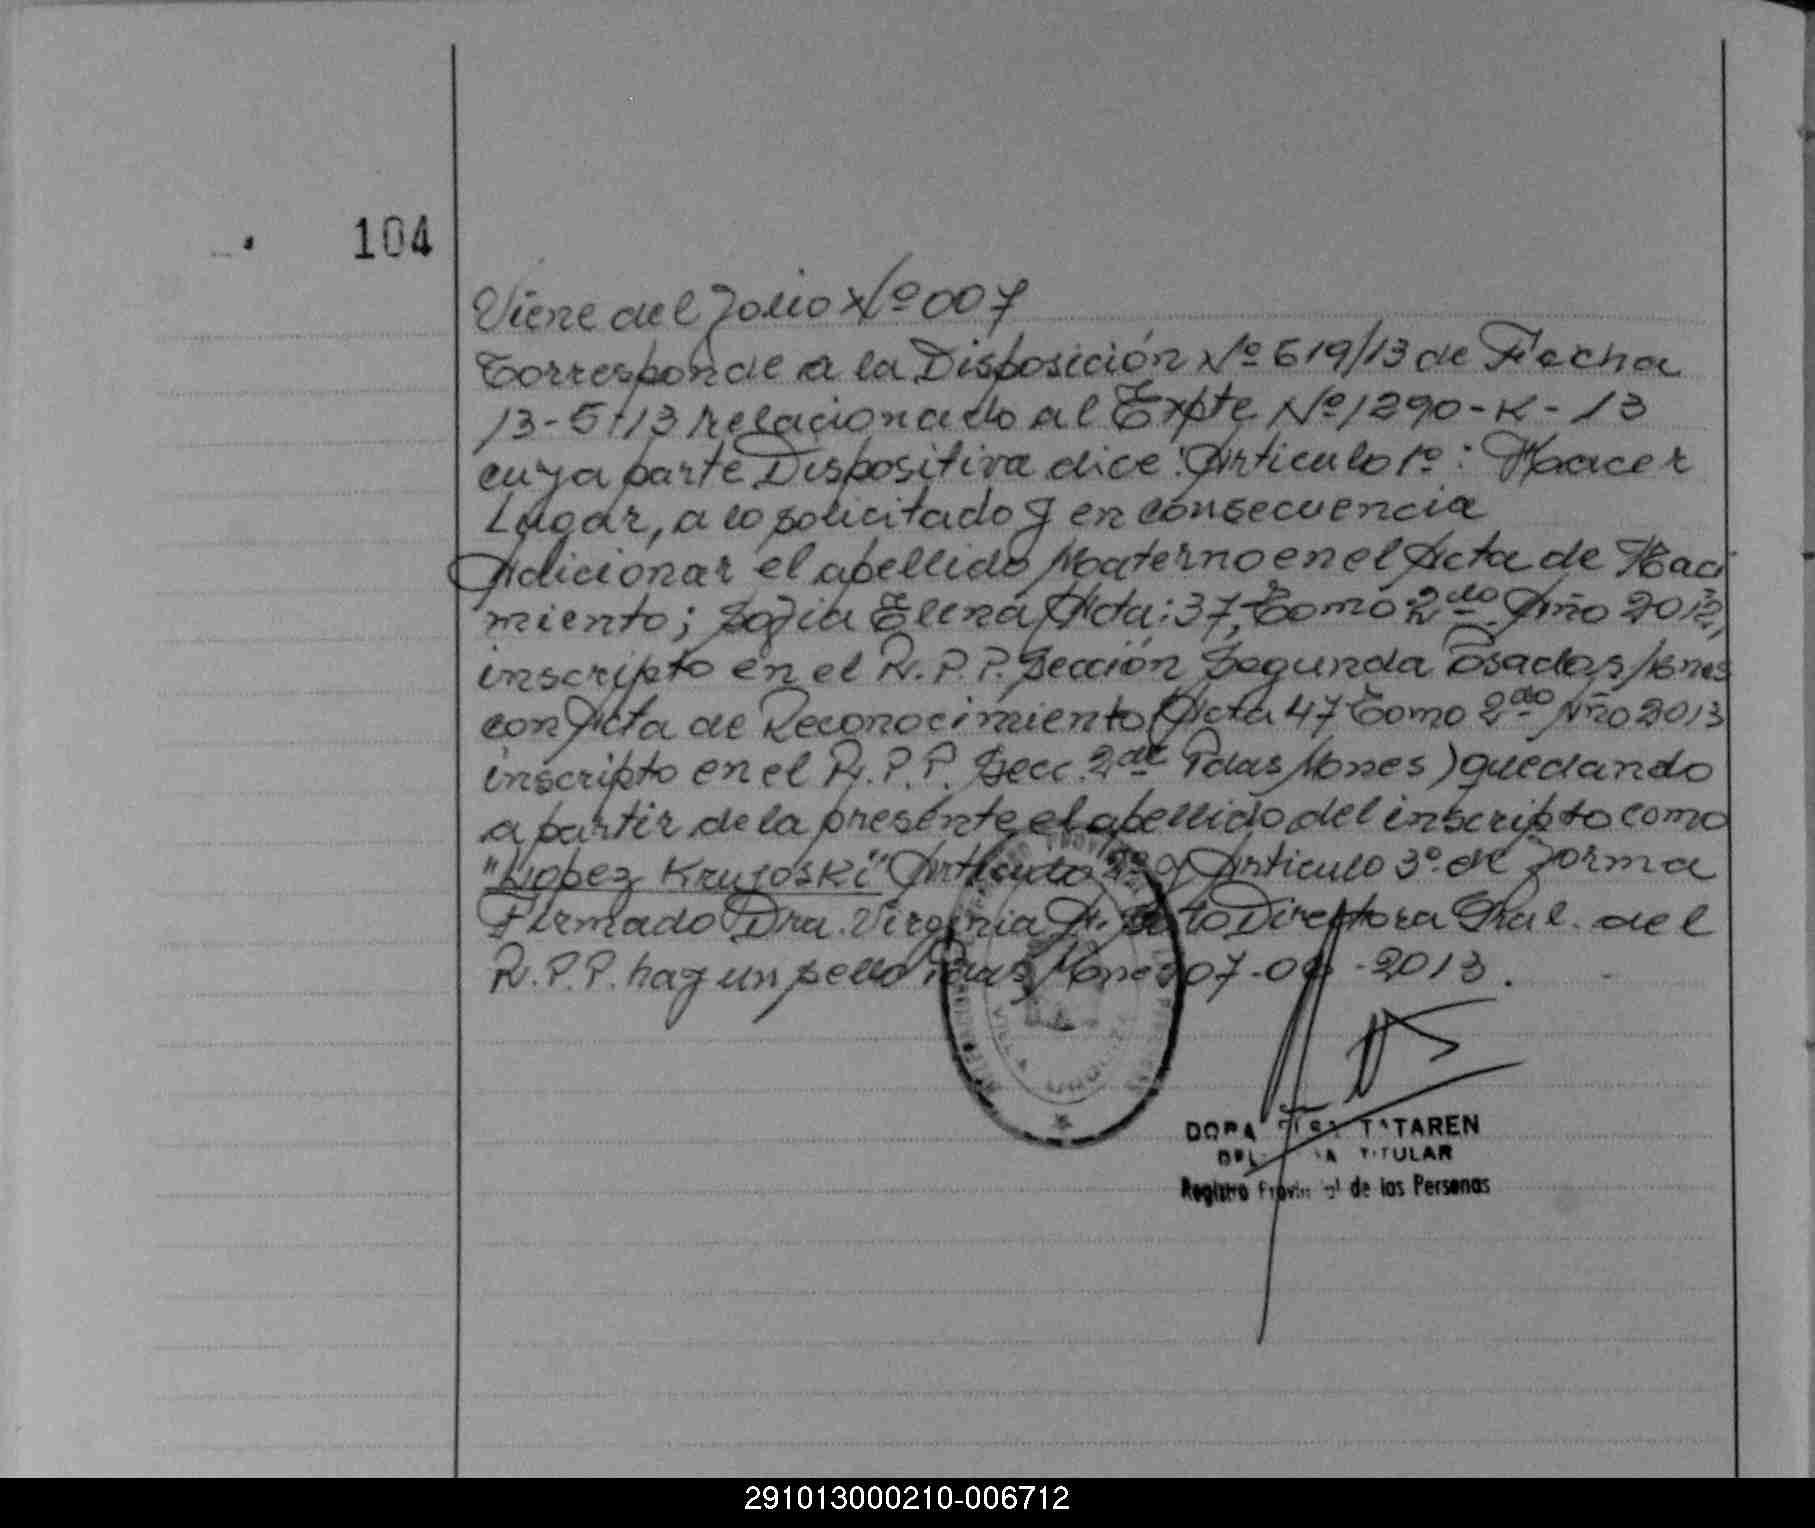 104
Viene del Folio Nº 007
Corresponde a la Disposición Nº 619/13 de Fecha
13-5-13 relacionado al Expte Nº 1290-K-13
cuya parte Dispositiva dice: Articulo 1º: Hacer
Lugar, a lo solicitado y en consecuencia
Adicionar el apellido Materno en el Acta de Naci
miento; Sofia Elena Acta: 37, Tomo 2do Año 2012,
inscripto en el R.P.P. Sección Segunda Posadas Mnes
con Acta de Reconocimiento (Acta 47 Tomo 2do Año 2013
inscripto en el R.P.P. Secc. 2da Pdas Mones) quedando
a partir de la presente el apellido del inscripto como
"Lopez Krujoski" Articulo 2º y Articulo 3º de forma
Firmado Dra. Virginia Directora Gral. del
R.P.P. hay un sello Pdas Mones 07-06-2013.
DORA TATAREN
TITULAR
Registro Provincial de las Personas
291013000210-006712